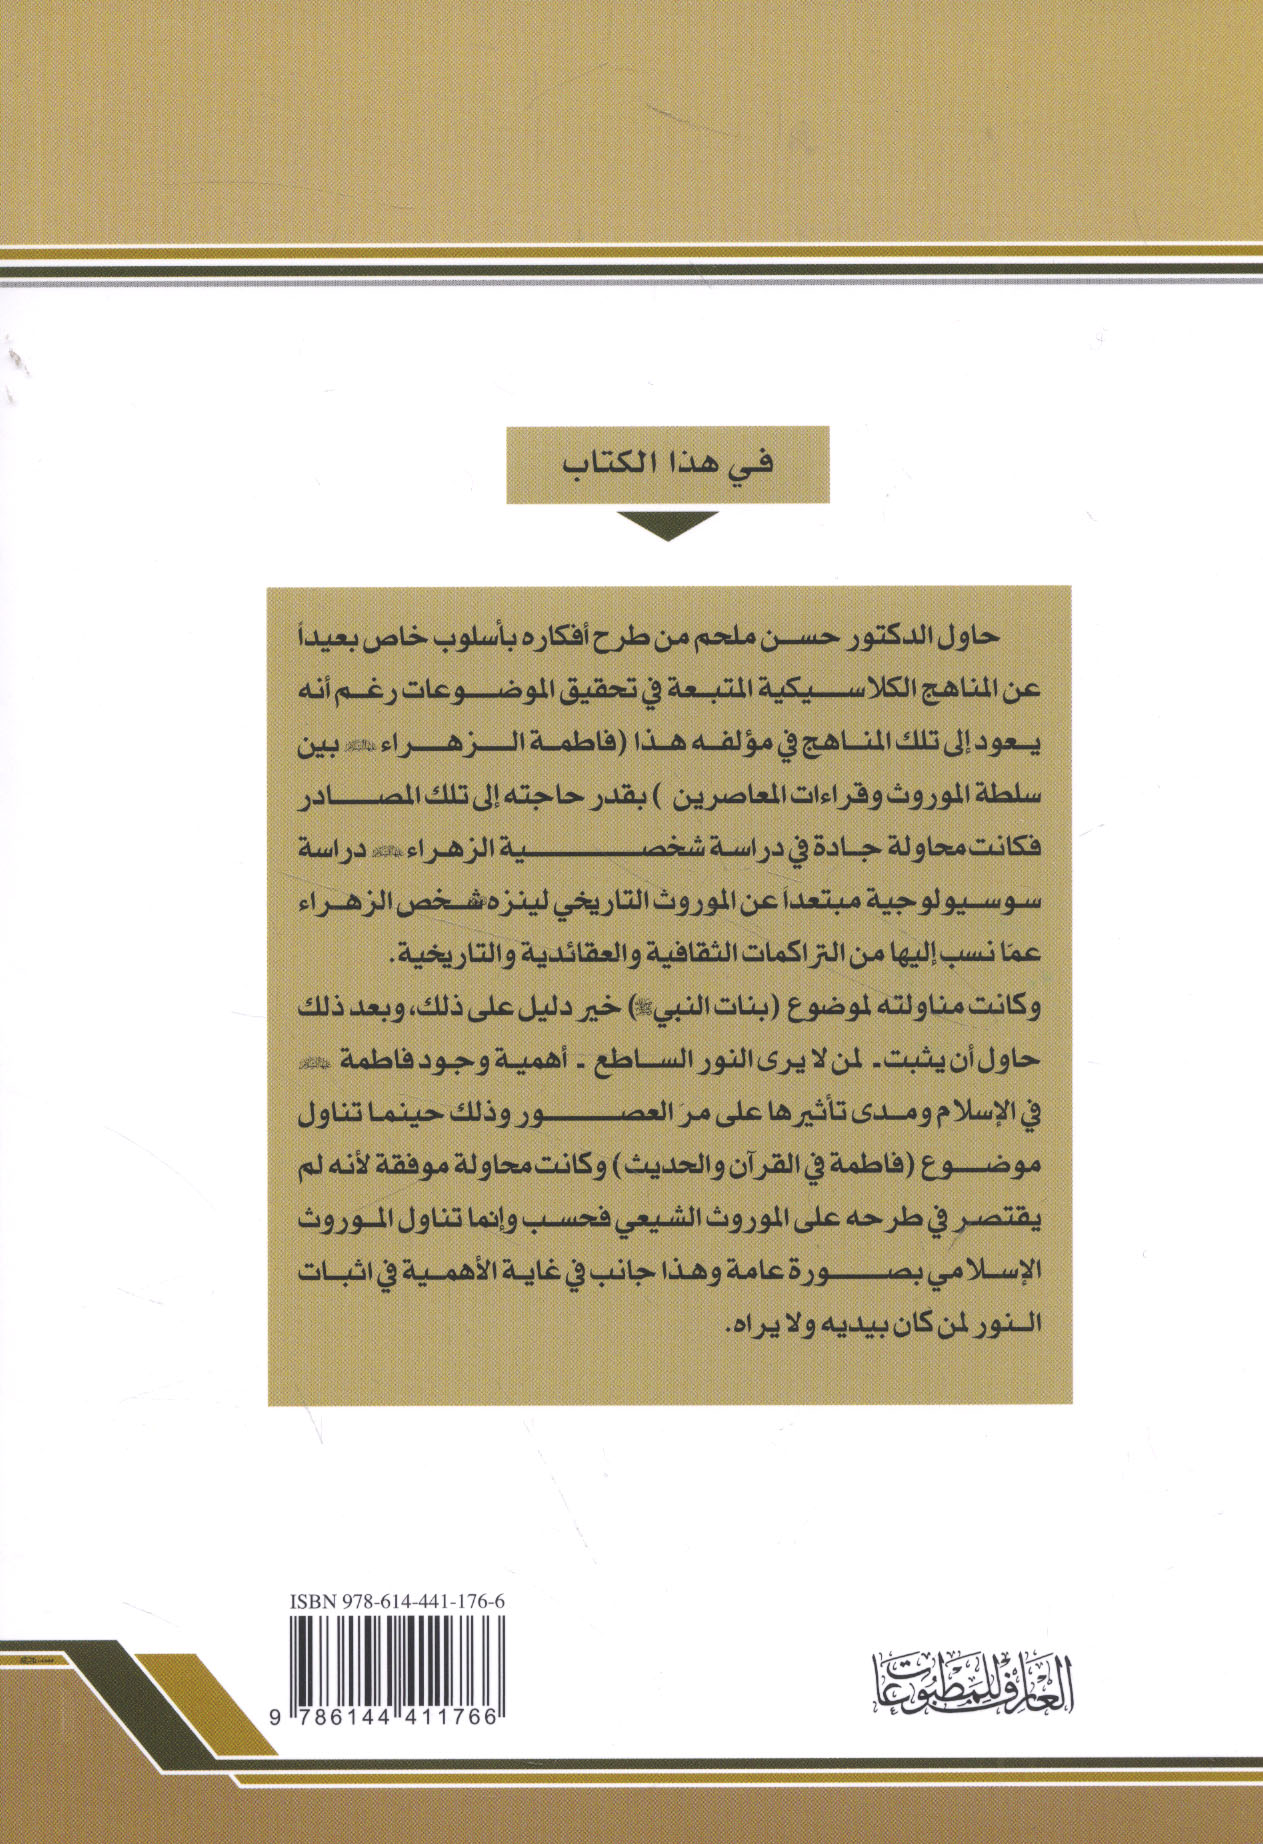 في هذا الكتاب
حاول الدكتور حسن ملحم من طرح أفكاره بأسلوب خاص بعيداً
عن المناهج الكلاسيكية المتبعة في تحقيق الموضوعات رغم أنه
يعود إلى تلك المناهج في مؤلفه هذا (فاطمة الزهراء عليها السلام بين
سلطة الموروث وقراءات المعاصرين ) بقدر حاجته إلى تلك المصادر
فكانت محاولة جادة في دراسة شخصية الزهراء عليها السلام دراسة
سوسيولوجية مبتعداً عن الموروث التاريخي لينزه شخص الزهراء
عمّا نسب إليها من التراكمات الثقافية والعقائدية والتاريخية.
وكانت مناولته لموضوع (بنات النبي ﷺ) خير دليل على ذلك، وبعد ذلك
حاول أن يثبت - لمن لا يرى النور الساطع - أهمية وجود فاطمة عليها السلام
في الإسلام ومدى تأثيرها على مرّ العصور وذلك حينما تناول
موضوع (فاطمة في القرآن والحديث) وكانت محاولة موفقة لأنه لم
يقتصر في طرحه على الموروث الشيعي فحسب وإنما تناول الموروث
الإسلامي بصورة عامة وهذا جانب في غاية الأهمية في اثبات
النور لمن كان بيديه ولا يراه.
ISBN 978-614-441-176-6
9 786144 411766
العارف للمطبوعات